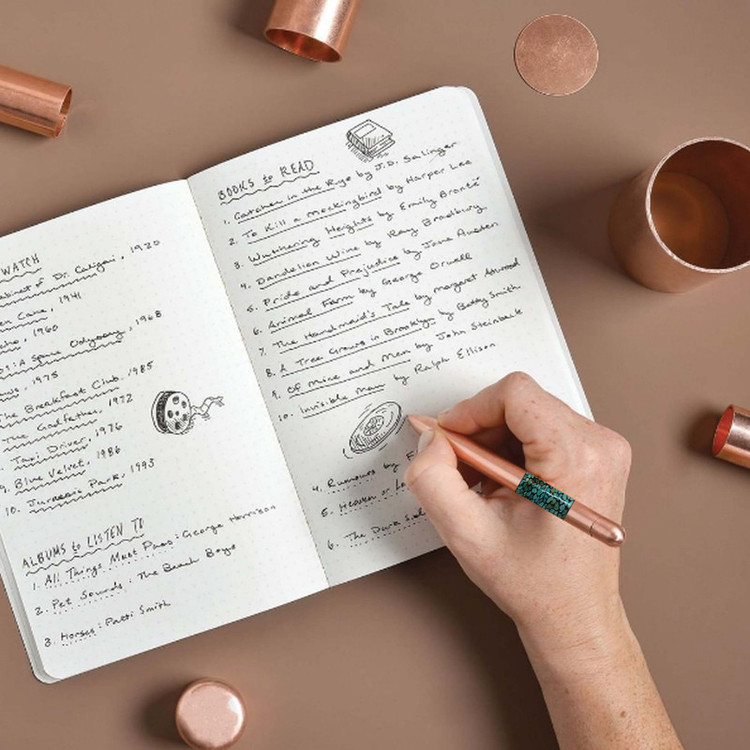 WATCH
Cabinet of Dr. Caligari, 1920
Cane, 1941
1960
A Space Odyssey, 1968
1975
The Breakfast Club, 1985
The Godfather, 1972
Taxi Driver, 1976
9. Blue Velvet, 1986
10. Jurassic Park, 1993
ALBUMS to LISTEN TO
1. All Things Must Pass: George Harrison
2. Pet Sounds: The Beach Boys
3. Horses: Patti Smith
BOOKS to READ
1. Catcher in the Rye by J.D. Salinger
2. To Kill a Mockingbird by Harper Lee
3. Wuthering Heights by Emily Brontë
4. Dandelion Wine by Ray Bradbury
5. Pride and Prejudice by Jane Austen
6. Animal Farm by George Orwell
7. The Handmaid's Tale by Margaret Atwood
8. A Tree Grows in Brooklyn by Betty Smith
9. Of Mice and Men by John Steinbeck
10. Invisible Man by Ralph Ellison
4. Rumours by
5. Heaven or
6. The Dark